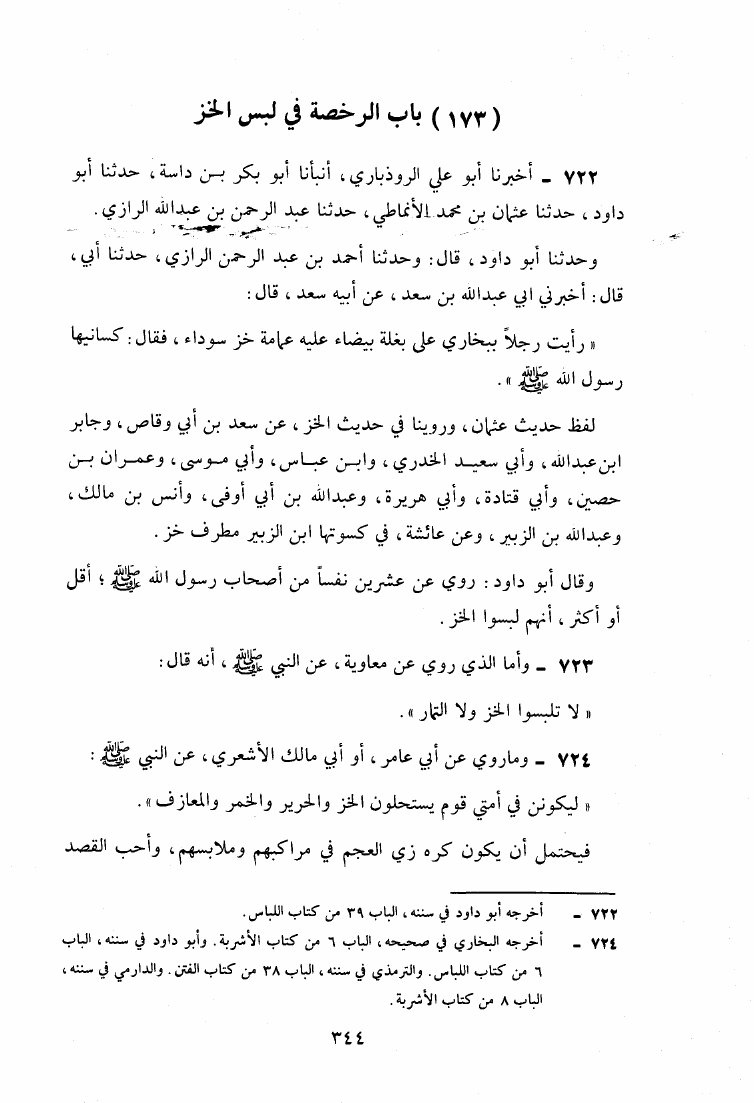 ( ١٧٣ ) باب الرخصة في لبس الخز
٧٢٢ ـ أخبرنا أبو علي الروذباري، أنبأنا أبو بكر بـن داسة، حدثنا أبو
داود، حدثنا عثمان بن محمد الأنماطي، حدثنا عبد الرحمن بن عبدالله الرازي.
وحدثنا أبو داود، قال: وحدثنا أحمد بن عبد الرحمن الرازي، حدثنا أبي،
قال: أخبرني ابي عبدالله بن سعد، عن أبيه سعد، قال:
« رأيت رجلاً ببخاري على بغلة بيضاء عليه عمامة خز سوداء، فقال: كسانيها
رسول الله ﷺ ».
لفظ حديث عثمان، وروينا في حديث الخز، عن سعد بن أبي وقاص، وجابر
ابن عبدالله، وأبي سعيـد الخدري، وابـن عبـاس، وأبي مـوسى، وعمـران بـن
حصين، وأبي قتادة، وأبي هريرة، وعبدالله بن أبي أوفى، وأنس بن مالك،
وعبدالله بن الزبير، وعن عائشة، في كسوتها ابن الزبير مطرف خز.
وقال أبو داود: روي عن عشرين نفساً من أصحاب رسول الله ﷺ؛ أقل
أو أكثر، أنهم لبسوا الخز.
٧٢٣ ـ وأما الذي روي عن معاوية، عن النبي ﷺ، أنه قال:
« لا تلبسوا الخز ولا التمار ».
٧٢٤ ـ وماروي عن أبي عامر، أو أبي مالك الأشعري، عن النبي ﷺ:
« ليكونن في أمتي قوم يستحلون الخز والحرير والخمر والمعازف ».
فيحتمل أن يكون كره زي العجم في مراكبهم وملابسهم، وأحب القصد
٧٢٢ ـ أخرجه أبو داود في سننه، الباب ٣٩ من كتاب اللباس.
٧٢٤ ـ أخرجه البخاري في صحيحه، الباب ٦ من كتاب الأشربة. وأبو داود في سننه، الباب
٦ من كتاب اللباس. والترمذي في سننه، الباب ٣٨ من كتاب الفتن. والدارمي في سننه،
الباب ٨ من كتاب الأشربة.
٣٤٤